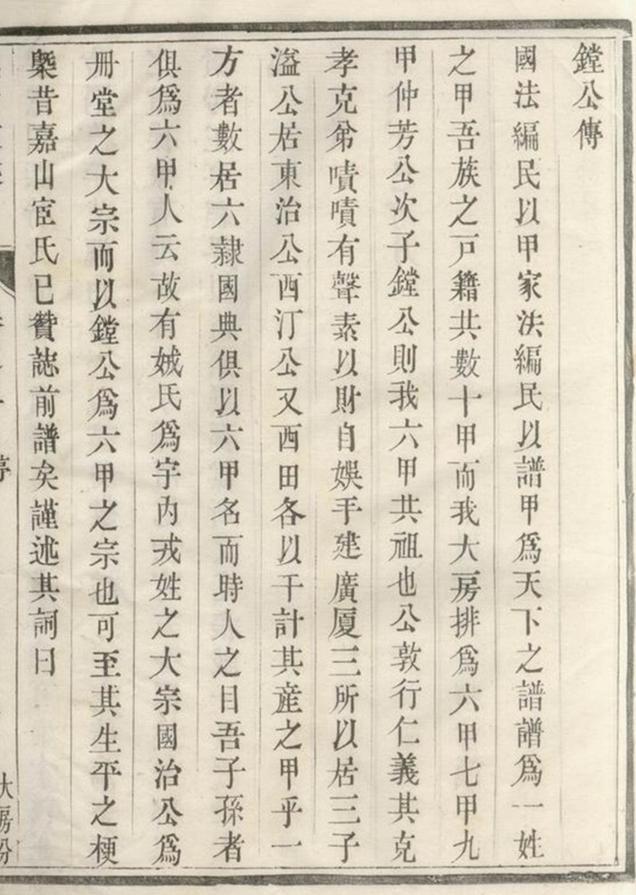 鏜公傳
國法編民以甲家法編民以譜甲爲天下之譜譜爲一姓
之甲吾族之戸籍共數十甲而我大房排爲六甲七甲九
甲仲芳公次子鏜公則我六甲共祖也公敦行仁義其克
孝克弟嘖嘖有聲素以財自娛手建廣厦三所以居三子
溢公居東治公西汀公又西田各以干計其產之甲乎一
方者數居六隷國典俱以六甲名而時人之目吾子孫者
俱爲六甲人云故有娀氏爲宇內戎姓之大宗國治公爲
冊堂之大宗而以鏜公爲六甲之宗也可至其生平之梗
槩昔嘉山宦氏已贊誌前譜矣謹述其詞曰
大房份